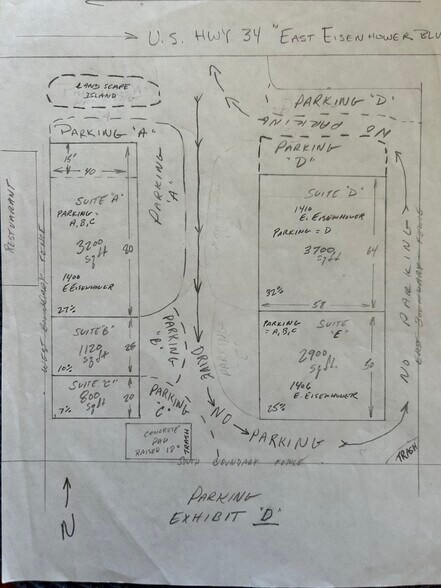 U.S. HWY 34 "EAST EISENHOWER BLV
LANDSCAPE
ISLAND
PARKING 'D'
NO
PARKING
PARKING 'A'
PARKING
"D"
15'
40
PARKING
'A'
SUITE 'A'
PARKING =
A,B,C
3200
sqft
80
1400
E EISENHOWER
27%
SUITE 'D'
1410
E. EISENHOWER
PARKING = D
3700
sqft
64
32%
58
RESTUARANT
WEST BOUNDARY FENCE
NO PARKING
EAST BOUNDARY FENCE
SUITE B'
1120
sqft
28
10%
PARKING
"B"
DRIVE
PARKING
PARKING
= A,B,C
SUITE
'E'
2900
sqft
50
1406
E. EISENHOWER
25%
SUITE "C"
800
sqft
20
7%
PARKING
'C'
NO
PARKING
CONCRETE
PAD
RAISED 18"
TRASH
TRASH
SOUTH BOUNDARY FENCE
N
PARKING
EXHIBIT 'D'